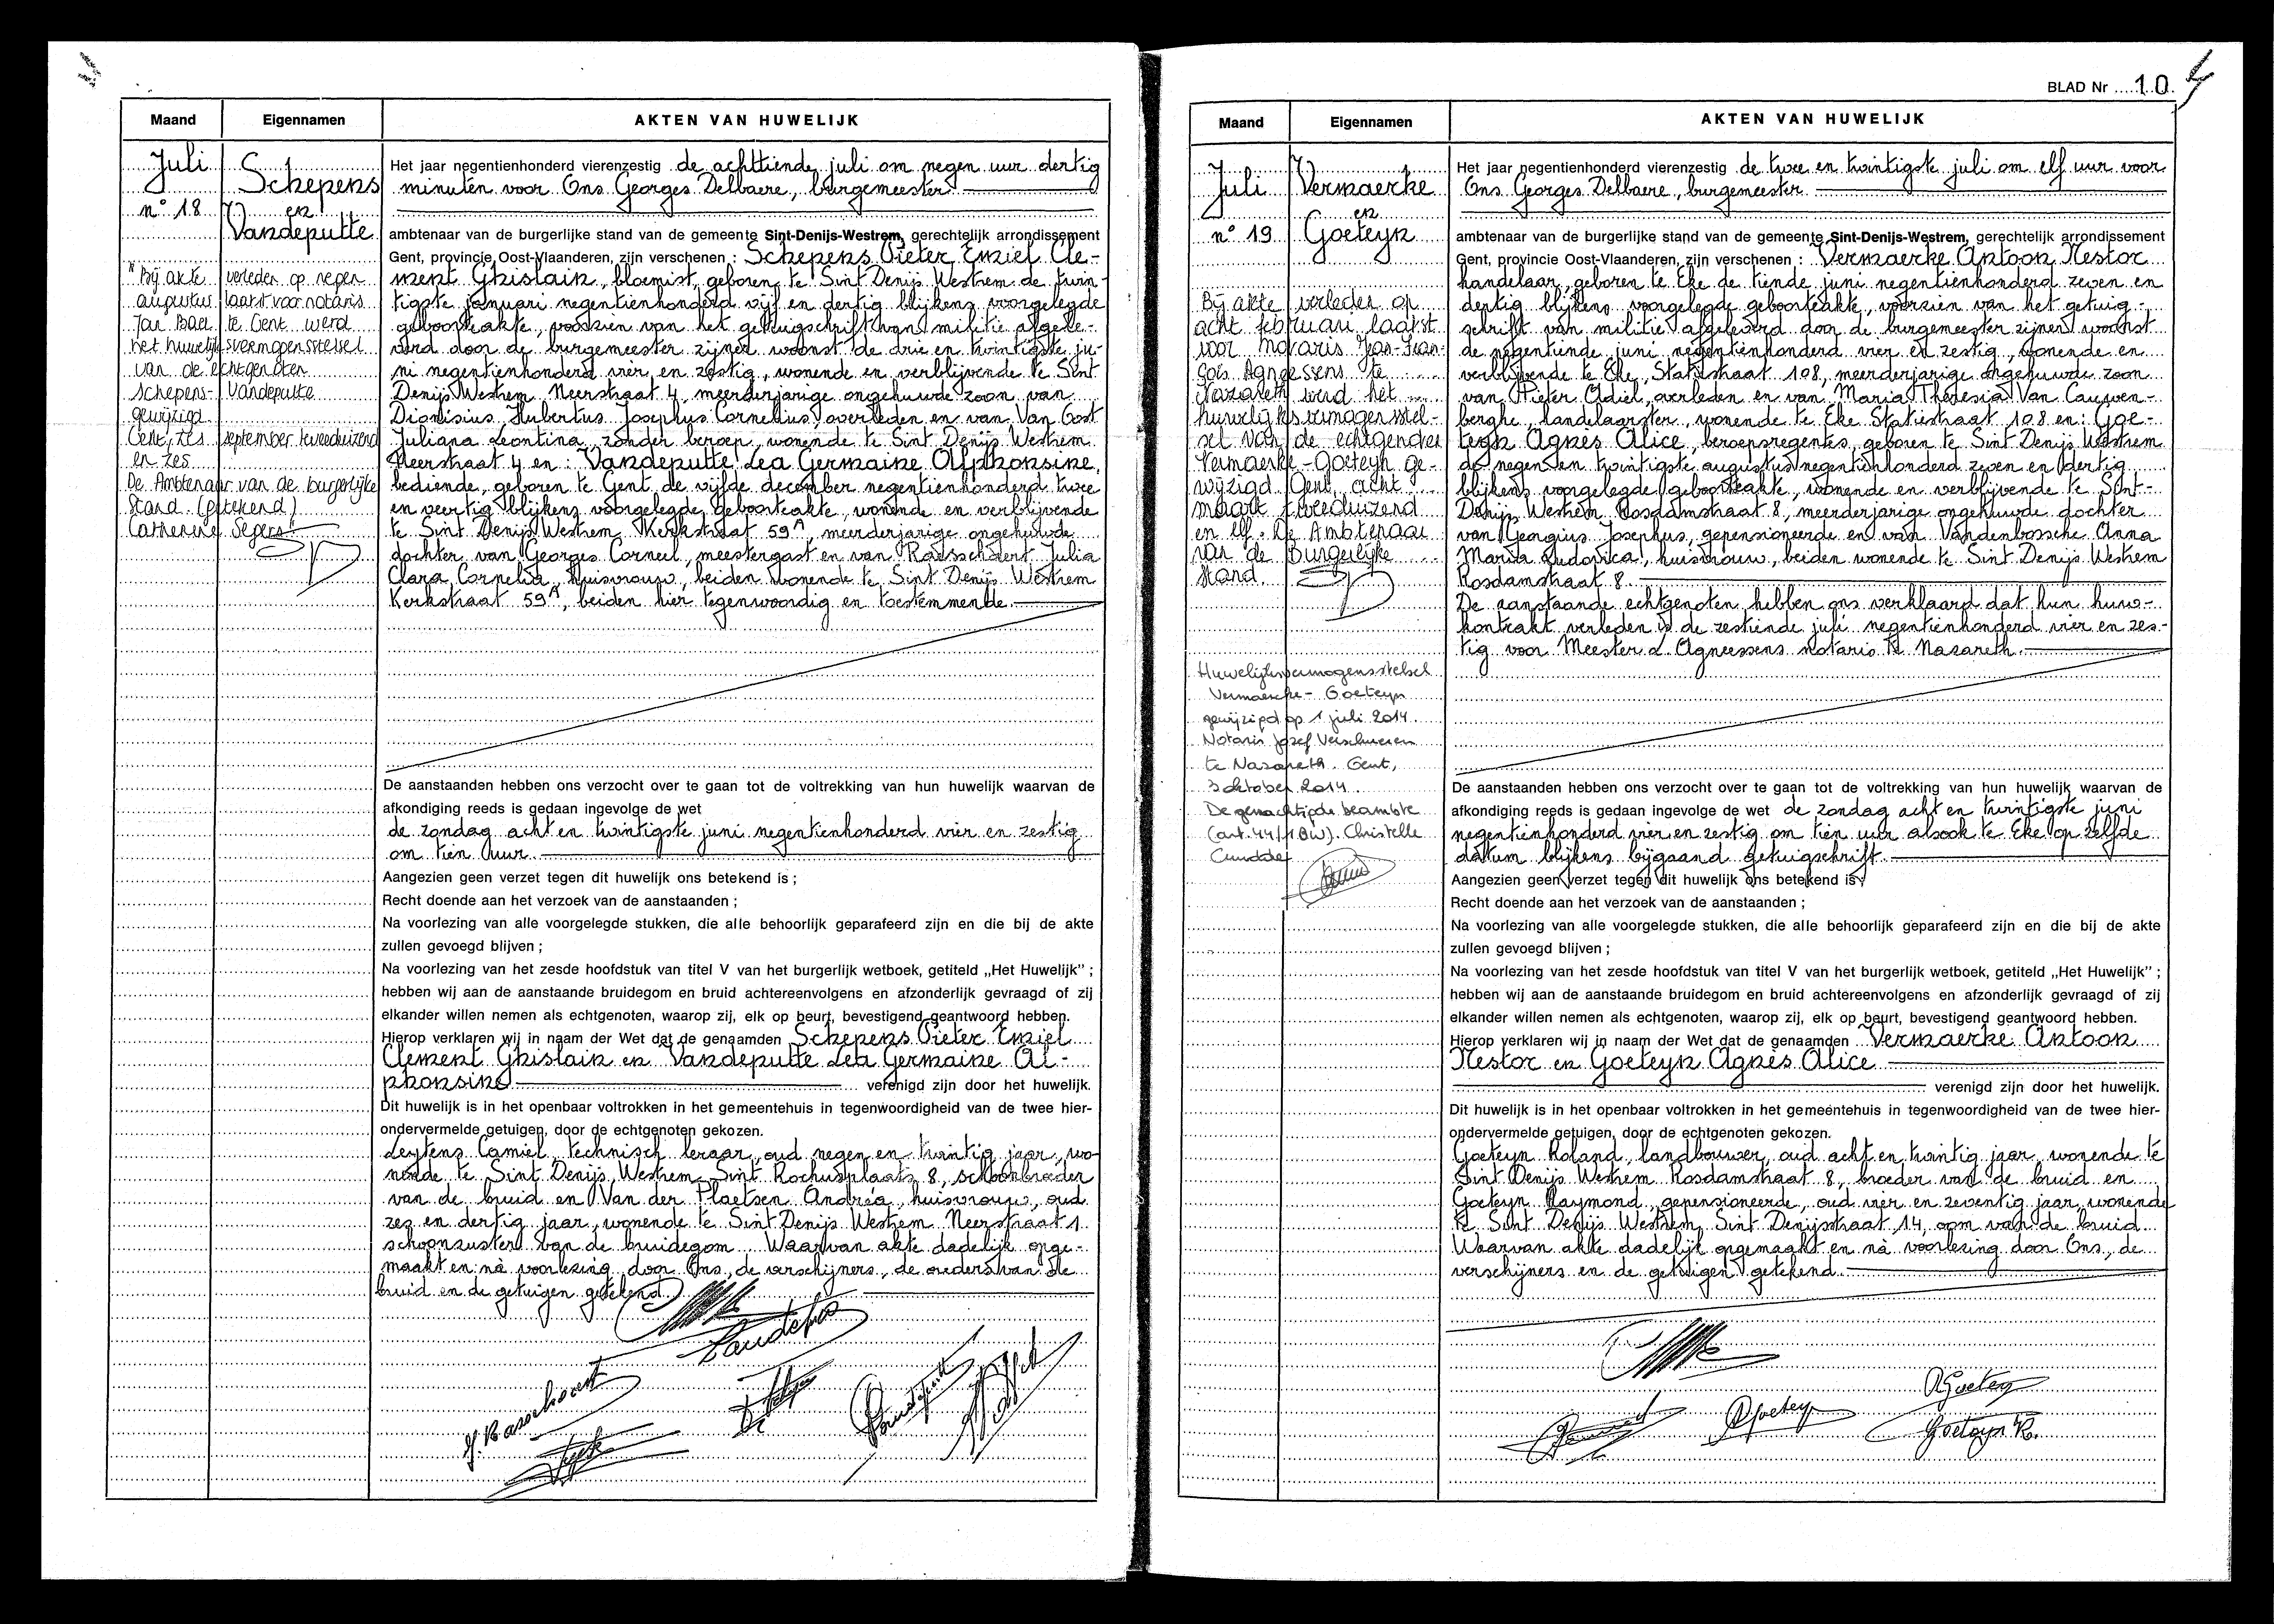 Maand
Eigennamen
AKTEN VAN HUWELIJK
Juli
n° 18
Schepens
en
Vandeputte
Bij akte verleden op negen
augustus laatst voor notaris
Jan Bael te Gent werd
het huwelijksvermogensstelsel
van de echtgenoten
Schepens-Vandeputte
gewijzigd
Gent, zes september tweeduizend
en zes
De Ambtenaar van de burgerlijke
stand. (getekend)
Catherine Segers
Het jaar negentienhonderd vierenzestig de achttiende juli om negen uur dertig
minuten voor Ons Georges Delbaere, burgemeester
ambtenaar van de burgerlijke stand van de gemeente Sint-Denijs-Westrem, gerechtelijk arrondissement
Gent, provincie Oost-Vlaanderen, zijn verschenen : Schepens Pieter Emiel Cle-
ment Ghislain, bloemist, geboren te Sint Denijs Westrem de twin-
tigste januari negentienhonderd vijf en dertig blijkens voorgelegde
geboorteakte, voorzien van het getuigschrift van militie afgele-
verd door de burgemeester zijner woonst de drie en twintigste ju-
ni negentienhonderd vier en zestig, wonende en verblijvende te Sint
Denijs Westrem Neerstraat 4, meerderjarige ongehuwde zoon van
Dionisius Hubertus Josephus Cornelius, overleden en van Van Oost
Juliana Leontina, zonder beroep, wonende te Sint Denijs Westrem
Neerstraat 4 en : Vandeputte Lea Germaine Alphonsine,
bediende, geboren te Gent de vijfde december negentienhonderd twee
en veertig blijkens voorgelegde geboorteakte, wonende en verblijvende
te Sint Denijs Westrem Kerkstraat 59A, meerderjarige ongehuwde
dochter van Georges Corneel, meestergast en van Rasschaert Julia
Clara Cornelia, huisvrouw, beiden wonende te Sint Denijs Westrem
Kerkstraat 59A, beiden hier tegenwoordig en toestemmende.
De aanstaanden hebben ons verzocht over te gaan tot de voltrekking van hun huwelijk waarvan de
afkondiging reeds is gedaan ingevolge de wet
de zondag acht en twintigste juni negentienhonderd vier en zestig
om tien uur.
Aangezien geen verzet tegen dit huwelijk ons betekend is ;
Recht doende aan het verzoek van de aanstaanden ;
Na voorlezing van alle voorgelegde stukken, die alle behoorlijk geparafeerd zijn en die bij de akte
zullen gevoegd blijven ;
Na voorlezing van het zesde hoofdstuk van titel V van het burgerlijk wetboek, getiteld „Het Huwelijk" ;
hebben wij aan de aanstaande bruidegom en bruid achtereenvolgens en afzonderlijk gevraagd of zij
elkander willen nemen als echtgenoten, waarop zij, elk op beurt, bevestigend geantwoord hebben.
Hierop verklaren wij in naam der Wet dat de genaamden Schepens Pieter Emiel
Clement Ghislain en Vandeputte Lea Germaine Al-
phonsine verenigd zijn door het huwelijk.
Dit huwelijk is in het openbaar voltrokken in het gemeentehuis in tegenwoordigheid van de twee hier-
ondervermelde getuigen, door de echtgenoten gekozen.
Leytens Camiel, technisch leraar, oud negen en twintig jaar, wo-
nende te Sint Denijs Westrem Sint Rochusplaats 8, schoonbroeder
van de bruid en Van der Plaetsen Andréa, huisvrouw, oud
zes en dertig jaar, wonende te Sint Denijs Westrem Neerstraat 1
schoonzuster van de bruidegom. Waarvan akte dadelijk opge-
maakt en nà voorlezing door Ons, de verschijners, de ouders van de
bruid en de getuigen getekend.
Vandeputte
J. Rasschaert
BLAD Nr 10
Maand
Eigennamen
AKTEN VAN HUWELIJK
Juli
n° 19
Vermaercke
en
Goeteyn
Bij akte verleden op
acht februari laatst
voor notaris Jan-Fran-
çois Agneessens te
Nazareth werd het
huwelijksvermogensstel-
sel van de echtgenoten
Vermaerke-Goeteyn ge-
wijzigd Gent, acht
maart tweeduizend
en elf. De Ambtenaar
van de Burgerlijke
stand.
Huwelijksvermogensstelsel
Vermaercke - Goeteyn
gewijzigd op 1 juli 2014
Notaris Jozef Verschueren
te Nazareth. Gent,
3 oktober 2014
De gemachtigde beambte
(art. 44/1 BW). Christelle
Het jaar negentienhonderd vierenzestig de twee en twintigste juli om elf uur voor
Ons Georges Delbaere, burgemeester
ambtenaar van de burgerlijke stand van de gemeente Sint-Denijs-Westrem, gerechtelijk arrondissement
Gent, provincie Oost-Vlaanderen, zijn verschenen : Vermaercke Antoon Nestor
handelaar, geboren te Eke de tiende juni negentienhonderd zeven en
dertig blijkens voorgelegde geboorteakte, voorzien van het getuig-
schrift van militie afgeleverd door de burgemeester zijner woonst
de negentiende juni negentienhonderd vier en zestig, wonende en
verblijvende te Eke, Statiestraat 108, meerderjarige ongehuwde zoon
van Pieter Odiel, overleden en van Maria Theresia Van Cauwen-
berghe, landelaarster, wonende te Eke Statiestraat 108 en: Goe-
teyn Agnès Alice, beroepsregentes, geboren te Sint Denijs Westrem
de negen en twintigste augustus negentienhonderd zeven en dertig
blijkens voorgelegde geboorteakte, wonende en verblijvende te Sint-
Denijs Westrem Rosdamstraat 8, meerderjarige ongehuwde dochter
van Georgius Josephus, gepensioneerde en van Vandenbossche Anna
Maria Ludovica, huisvrouw, beiden wonende te Sint Denijs Westrem
Rosdamstraat 8.
De aanstaande echtgenoten hebben ons verklaard dat hun huw-
kontrakt verleden is de zestiende juli negentienhonderd vier en zes-
tig voor Meester L. Agneessens notaris te Nazareth.
De aanstaanden hebben ons verzocht over te gaan tot de voltrekking van hun huwelijk waarvan de
afkondiging reeds is gedaan ingevolge de wet de zondag acht en twintigste juni
negentienhonderd vier en zestig om tien uur alsook te Eke op zelfde
datum blijkens bijgaand getuigschrift.
Aangezien geen verzet tegen dit huwelijk ons betekend is ;
Recht doende aan het verzoek van de aanstaanden ;
Na voorlezing van alle voorgelegde stukken, die alle behoorlijk geparafeerd zijn en die bij de akte
zullen gevoegd blijven ;
Na voorlezing van het zesde hoofdstuk van titel V van het burgerlijk wetboek, getiteld „Het Huwelijk" ;
hebben wij aan de aanstaande bruidegom en bruid achtereenvolgens en afzonderlijk gevraagd of zij
elkander willen nemen als echtgenoten, waarop zij, elk op beurt, bevestigend geantwoord hebben.
Hierop verklaren wij in naam der Wet dat de genaamden Vermaercke Antoon
Nestor en Goeteyn Agnès Alice
verenigd zijn door het huwelijk.
Dit huwelijk is in het openbaar voltrokken in het gemeentehuis in tegenwoordigheid van de twee hier-
ondervermelde getuigen, door de echtgenoten gekozen.
Goeteyn Roland, landbouwer, oud acht en twintig jaar, wonende te
Sint Denijs Westrem Rosdamstraat 8, broeder van de bruid en
Goeteyn Raymond, gepensioneerde, oud vier en zeventig jaar, wonende
te Sint Denijs Westrem Sint Denijsstraat 14, oom van de bruid
Waarvan akte dadelijk opgemaakt en nà voorlezing door Ons, de
verschijners en de getuigen getekend.
RGoeteyn
AGoeteyn
Goeteyn R.